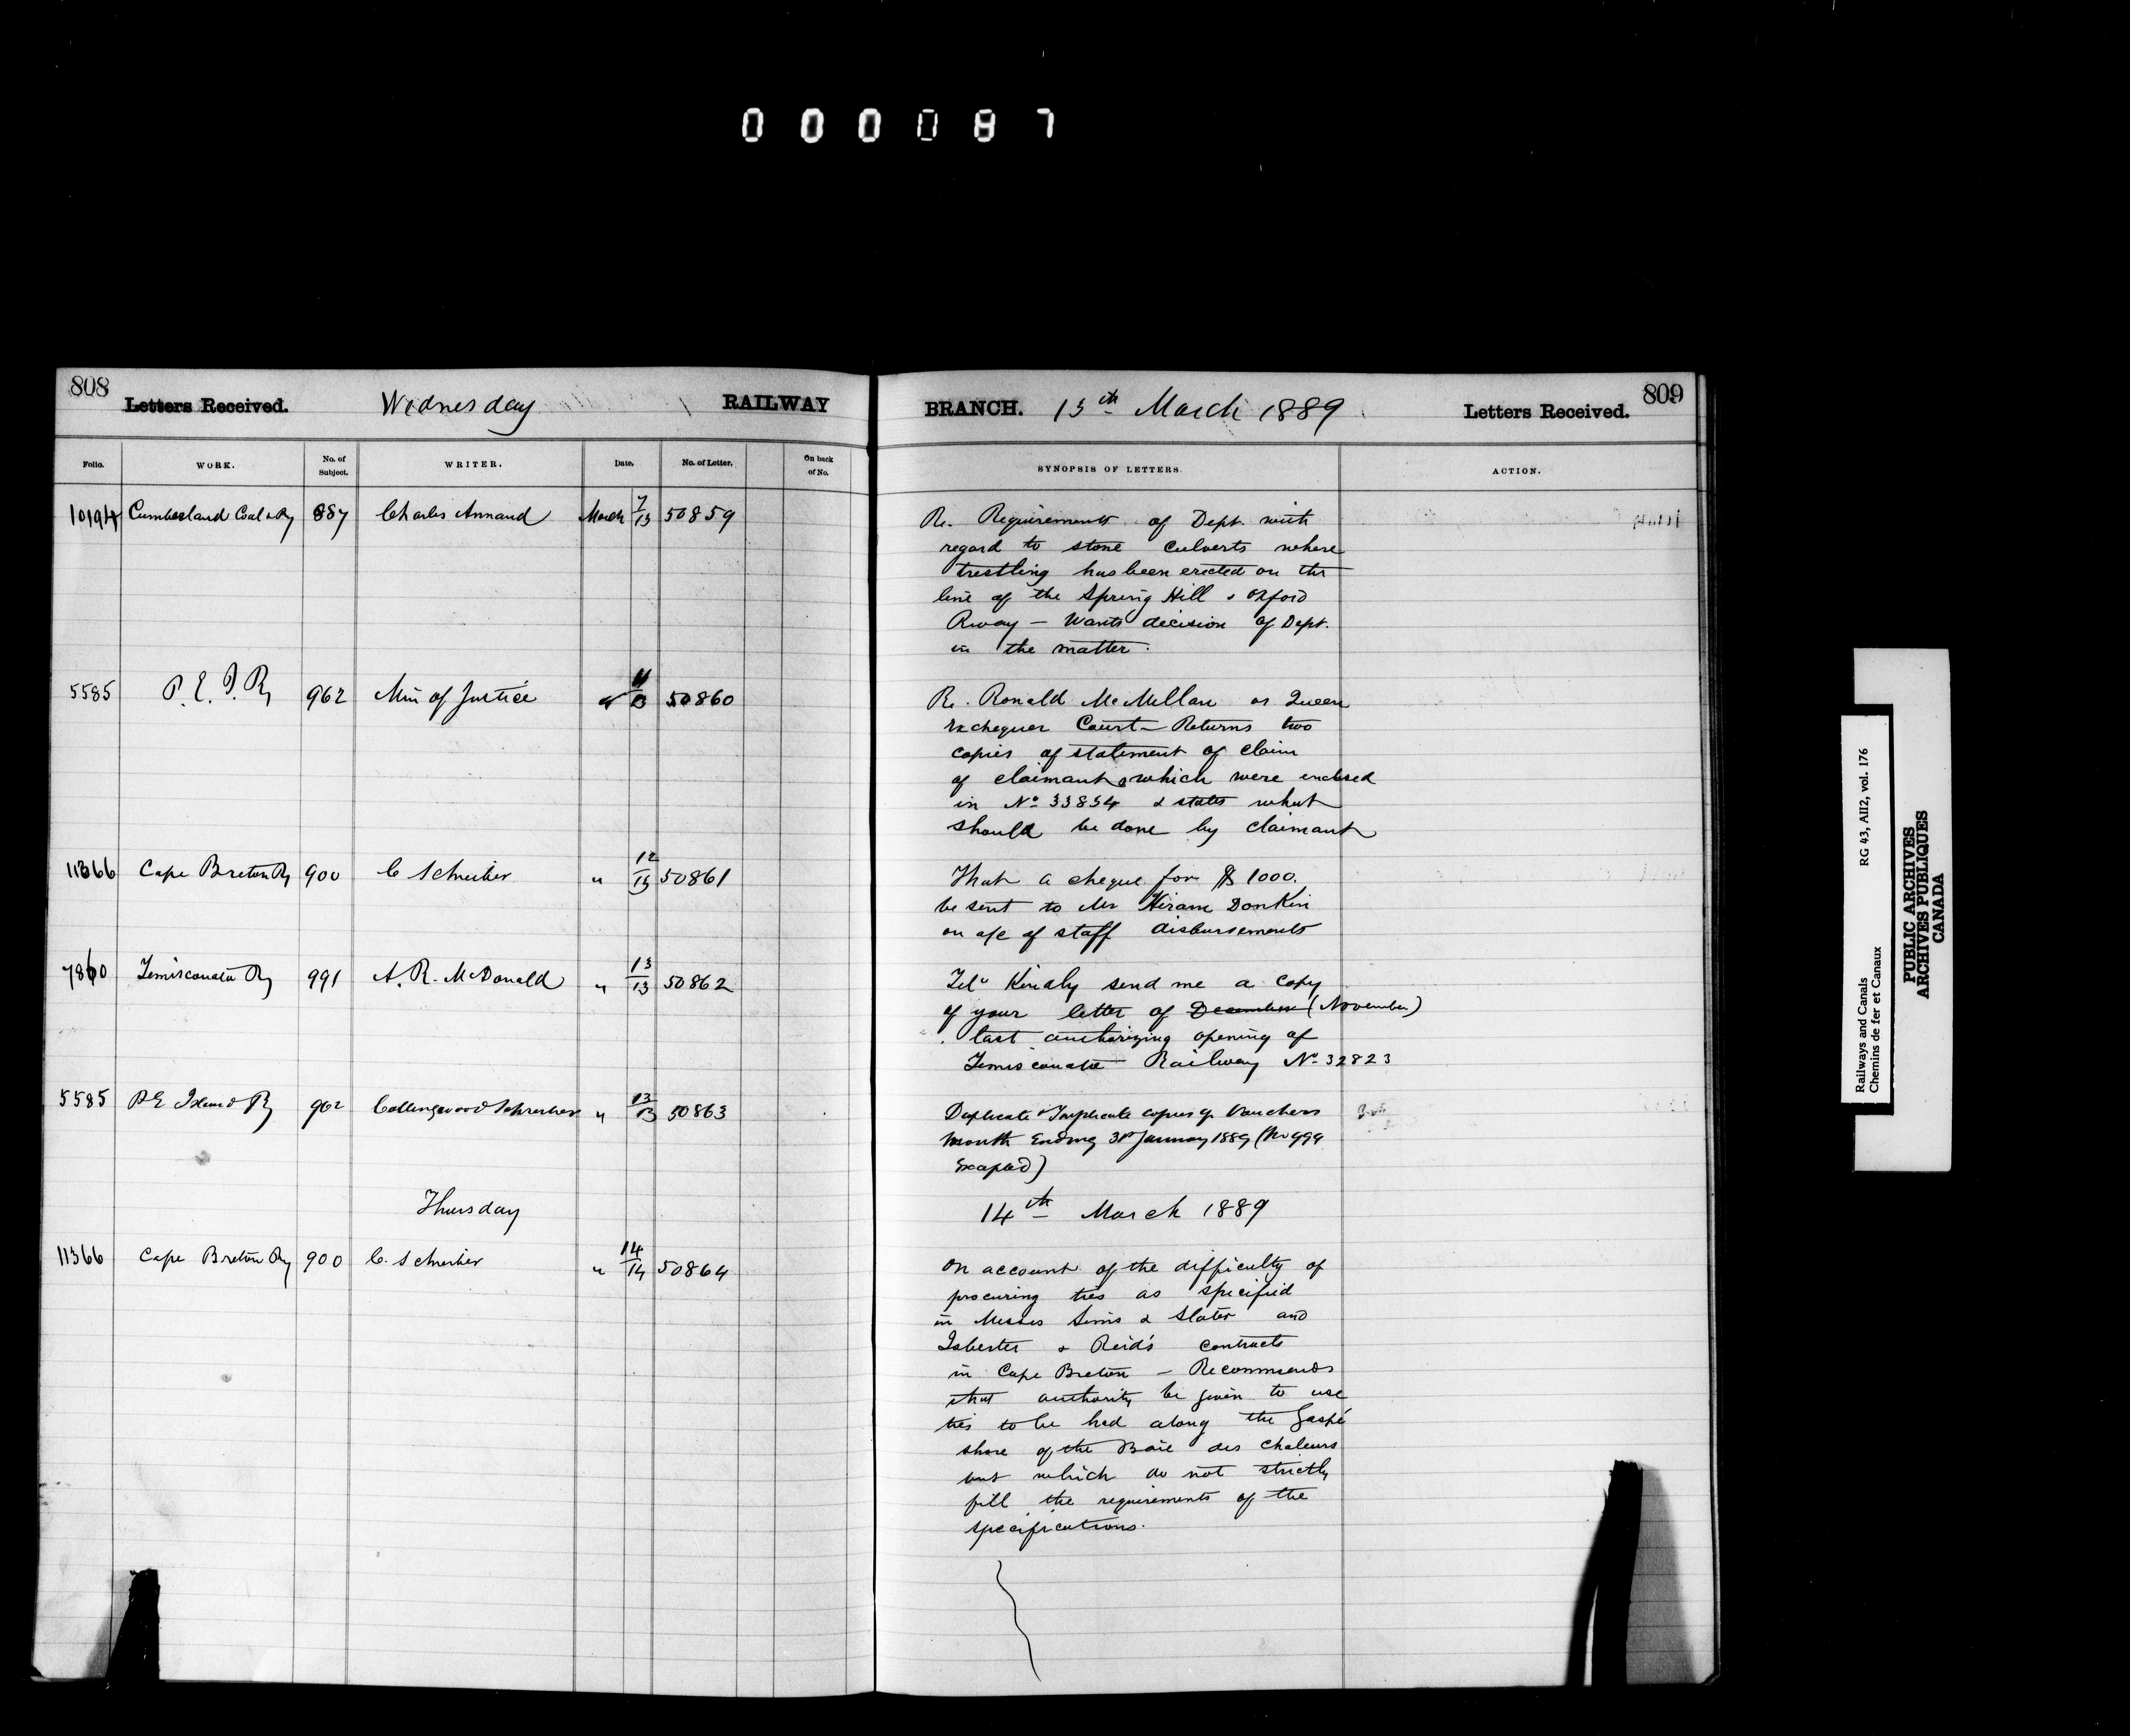 000087
808
Letters Received.
Wednesday
RAILWAY
Folio.
WORK.
No. of Subject.
WRITER.
Date.
No. of Letter.
On back of No.
10194 Cumberland Coal & Ry 887 Charles Annand March 7/13 50859
5585 P. E. I. Ry 962 Min of Justice " 11/13 50860
11366 Cape Breton Ry 900 C Schreiber " 12/13 50861
7860 Temiscouata Ry 991 A. R. McDonald " 13/13 50862
5585 P E Island Ry 962 Collingwood Schreiber " 13/13 50863
Thursday
11366 Cape Breton Ry 900 C. Schreiber " 14/14 50864
BRANCH.
13th March 1889
Letters Received.
809
SYNOPSIS OF LETTERS.
ACTION.
Re. Requirements of Dept. with
regard to stone culverts where
trestling has been erected on the
line of the Spring Hill & Oxford
Rway — Wants decision of Dept.
in the matter.
Re. Ronald McMillan vs Queen
Exchequer Court — Returns two
copies of statement of claim
of claimant which were enclosed
in No 33854 & states what
should be done by claimant
That a cheque for $1000.
be sent to Mr Hiram Donkin
on a/c of staff disbursements
Telm Kindly send me a copy
of your letter of December (November)
last authorizing opening of
Temiscouata Railway No 32823
Duplicate & Triplicate copies of Vouchers
month Ending 31st January 1889 (No 999
Excepted)
14th March 1889
On account of the difficulty of
procuring ties as specified
in Messrs Sims & Slater and
Isbester & Reid's contracts
in Cape Breton — Recommends
that authority be given to use
ties to be had along the Gaspé
shore of the Baie des Chaleurs
but which do not strictly
fill the requirements of the
specifications.
Railways and Canals RG 43, AII2, vol. 176
Chemins de fer et Canaux
PUBLIC ARCHIVES
ARCHIVES PUBLIQUES
CANADA